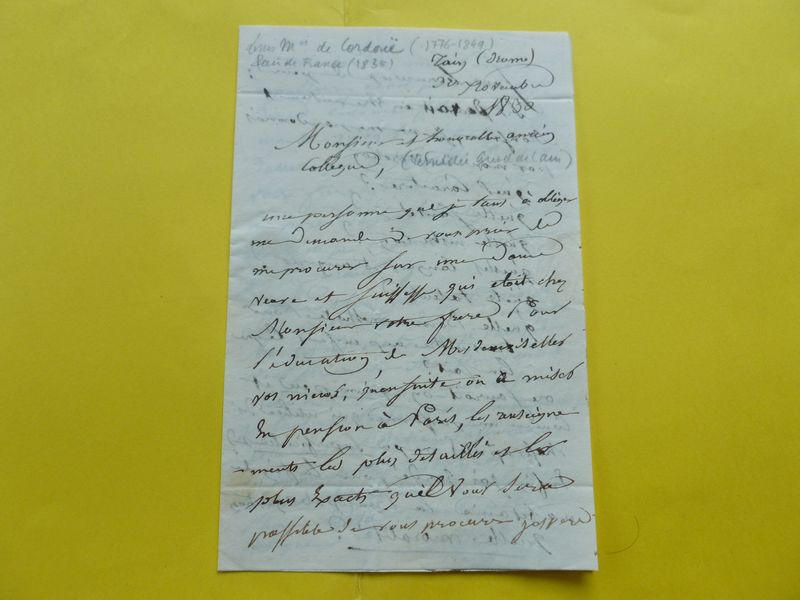 Mis de Cordoüe (1776-1849)
Pair de France (1835)
Tain (Drome)
novembre
1830
Monsieur et honorable ancien
Collègue,
une personne que je tiens à obliger
me demande de vous prier de
me procurer sur une Dame
veuve et Suissesse qui etoit chez
Monsieur votre frere Pour
l'éducation de Mesdemoiselles
vos nieces, qu'ensuite on a mises
En pension à Paris, les renseigne
-ments les plus détaillés et les
plus Exacts qu'il vous sera
possible de vous procurer j'espere